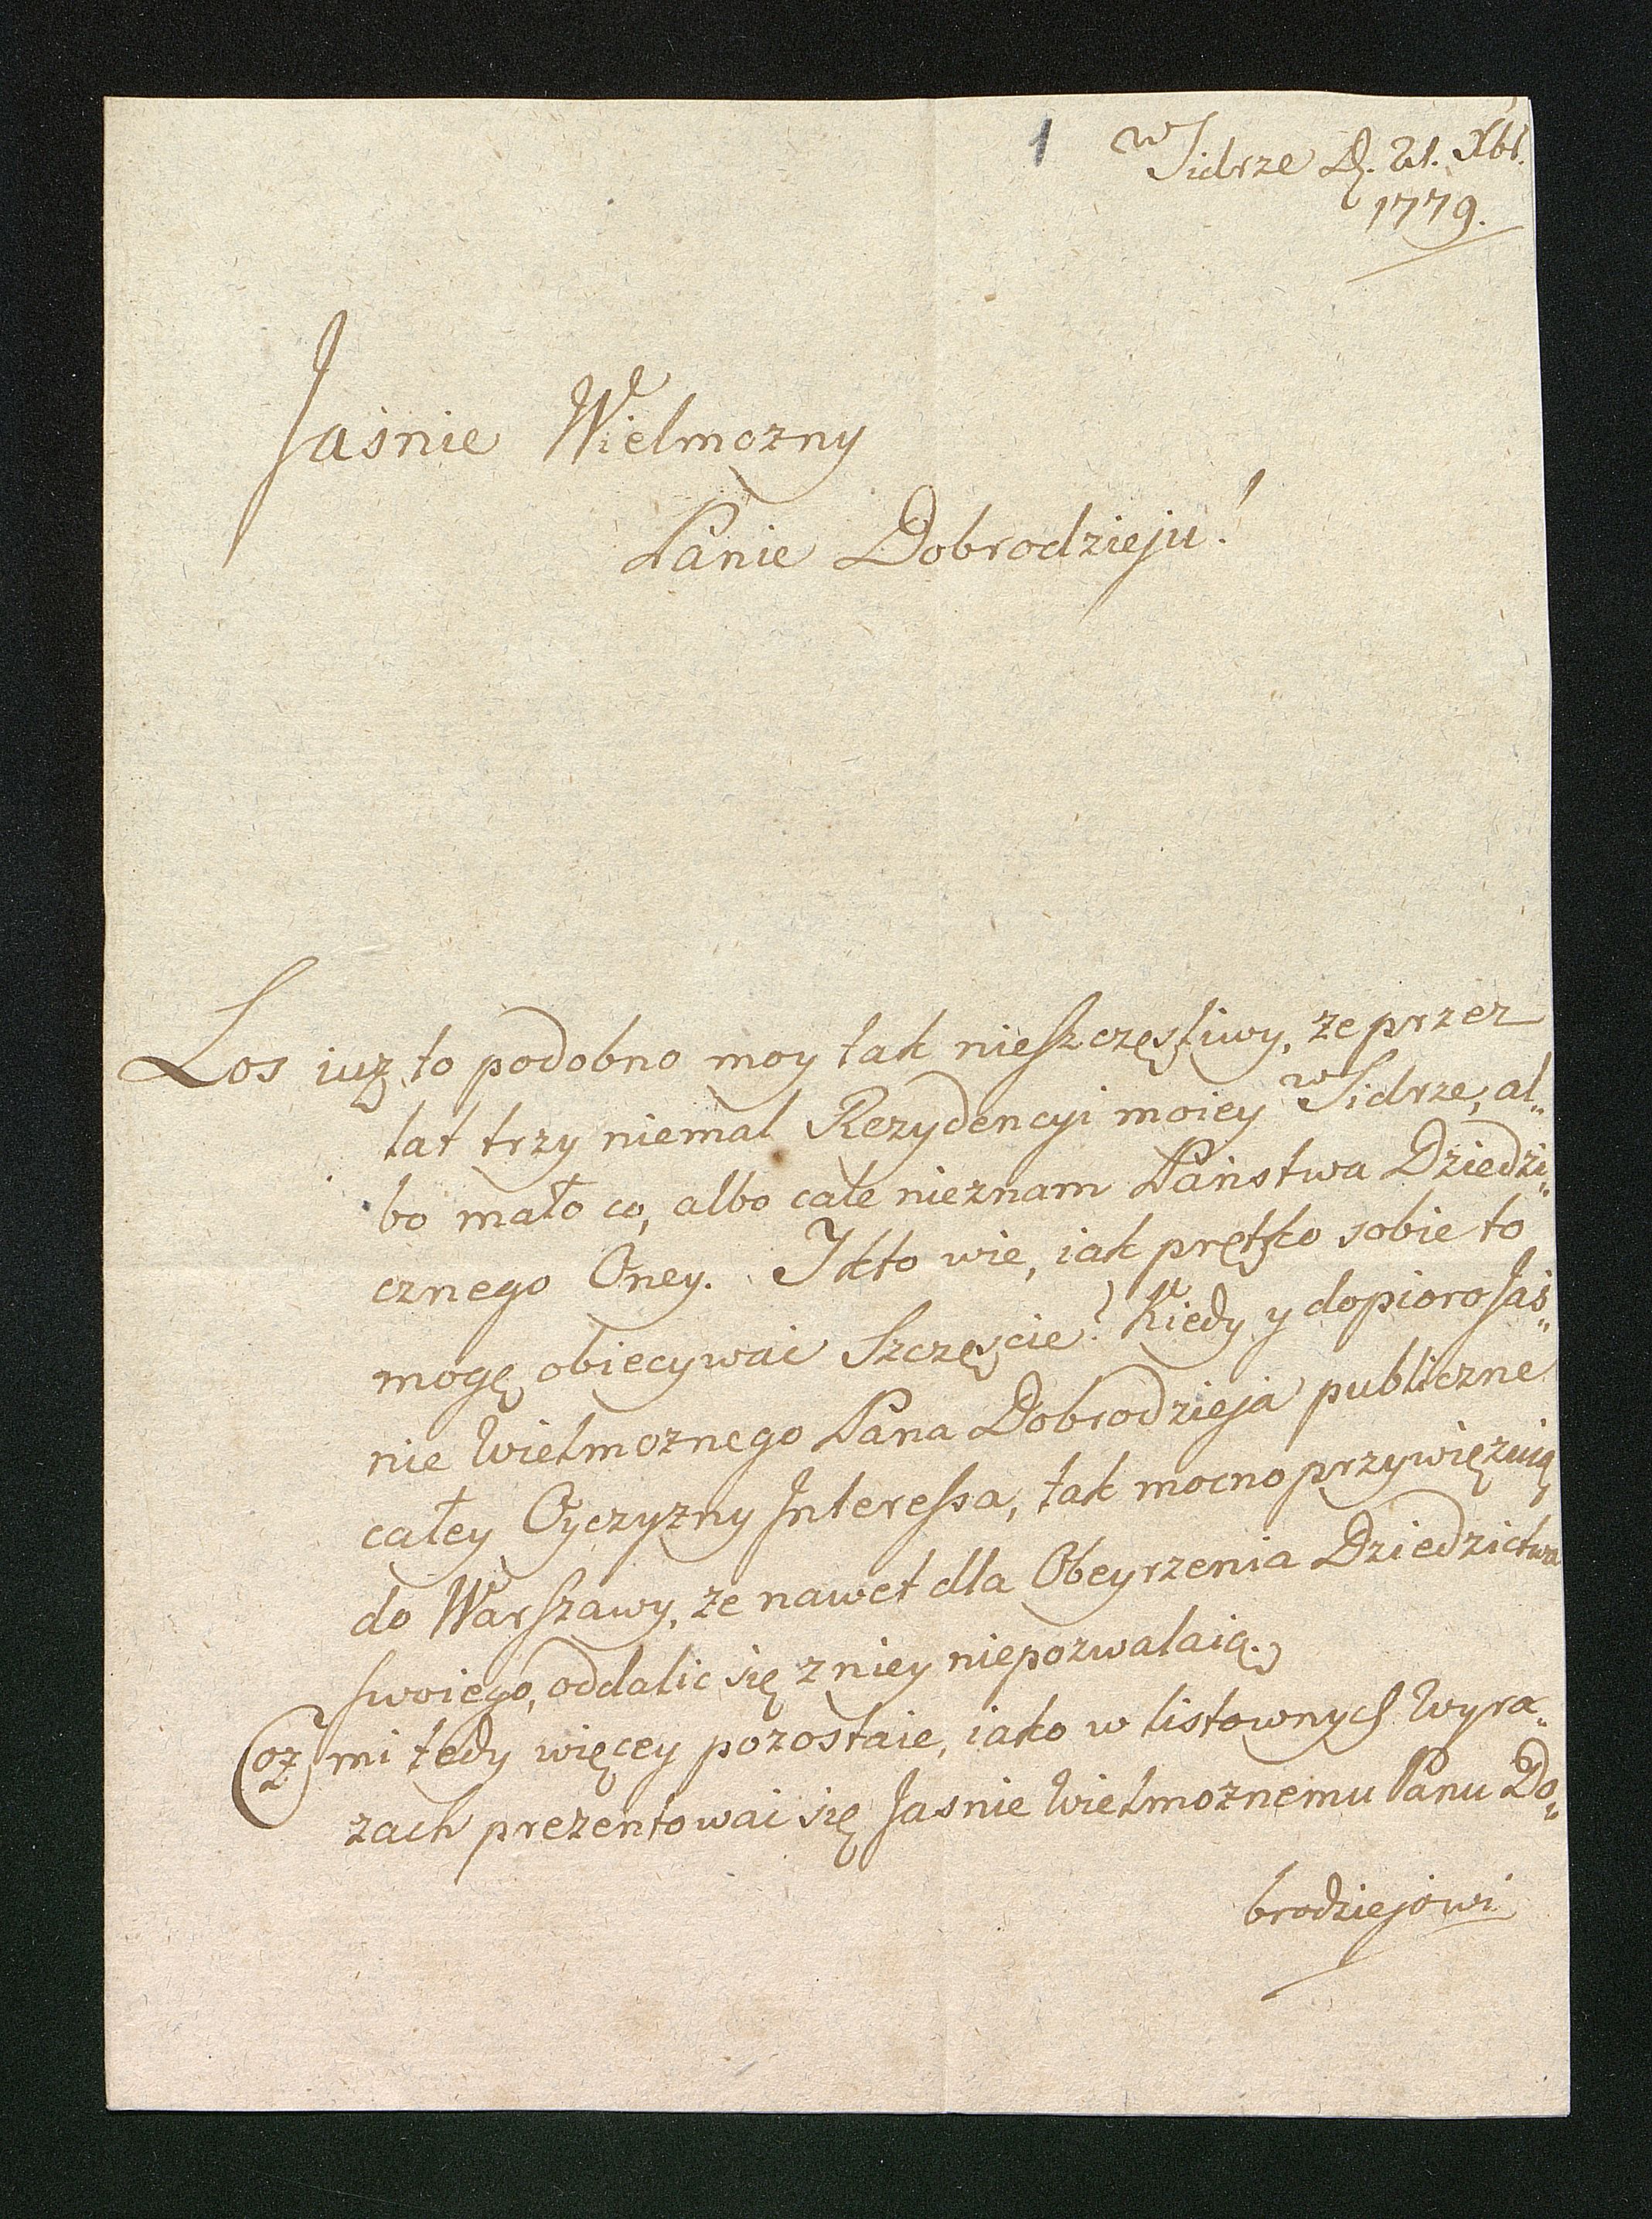 1
w Sidrze D. 21. Xbr.
1779.
Jaśnie Wielmozny
Panie Dobrodzieju!
Los iuz to podobno moy tak nieszczęsliwy, ze przez
lat trzy niemal Rezydencyi moiey w Sidrze, al=
bo mało co, albo cale nieznam Państwa Dziedzi=
cznego Oney. I kto wie, iak prętko sobie to
mogę obiecywać Szczęście? Kiedy y dopioro Jaś=
nie Wielmoznego Pana Dobrodzieja publiczne
całey Oyczyzny Interessa, tak mocno przywięzuią
do Warszawy, ze nawet dla Obeyrzenia Dziedzictwa
swoiego, oddalic się z niey niepozwalaią.
Coz mi tedy więcey pozostaie, iako w listownych Wyra=
zach prezentować się Jasnie Wielmoznemu Panu Do=
brodziejowi